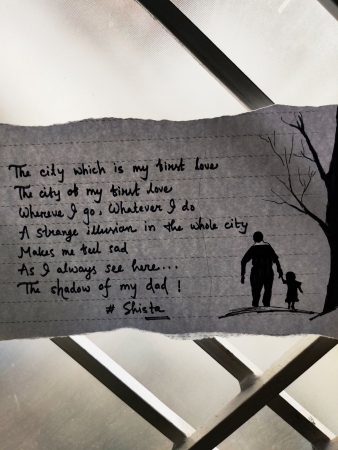 The city which is my first love
The city of my first love
Wherever I go, Whatever I do
A strange illusion in the whole city
Makes me feel sad
As I always see here...
The shadow of my dad !
# Shista